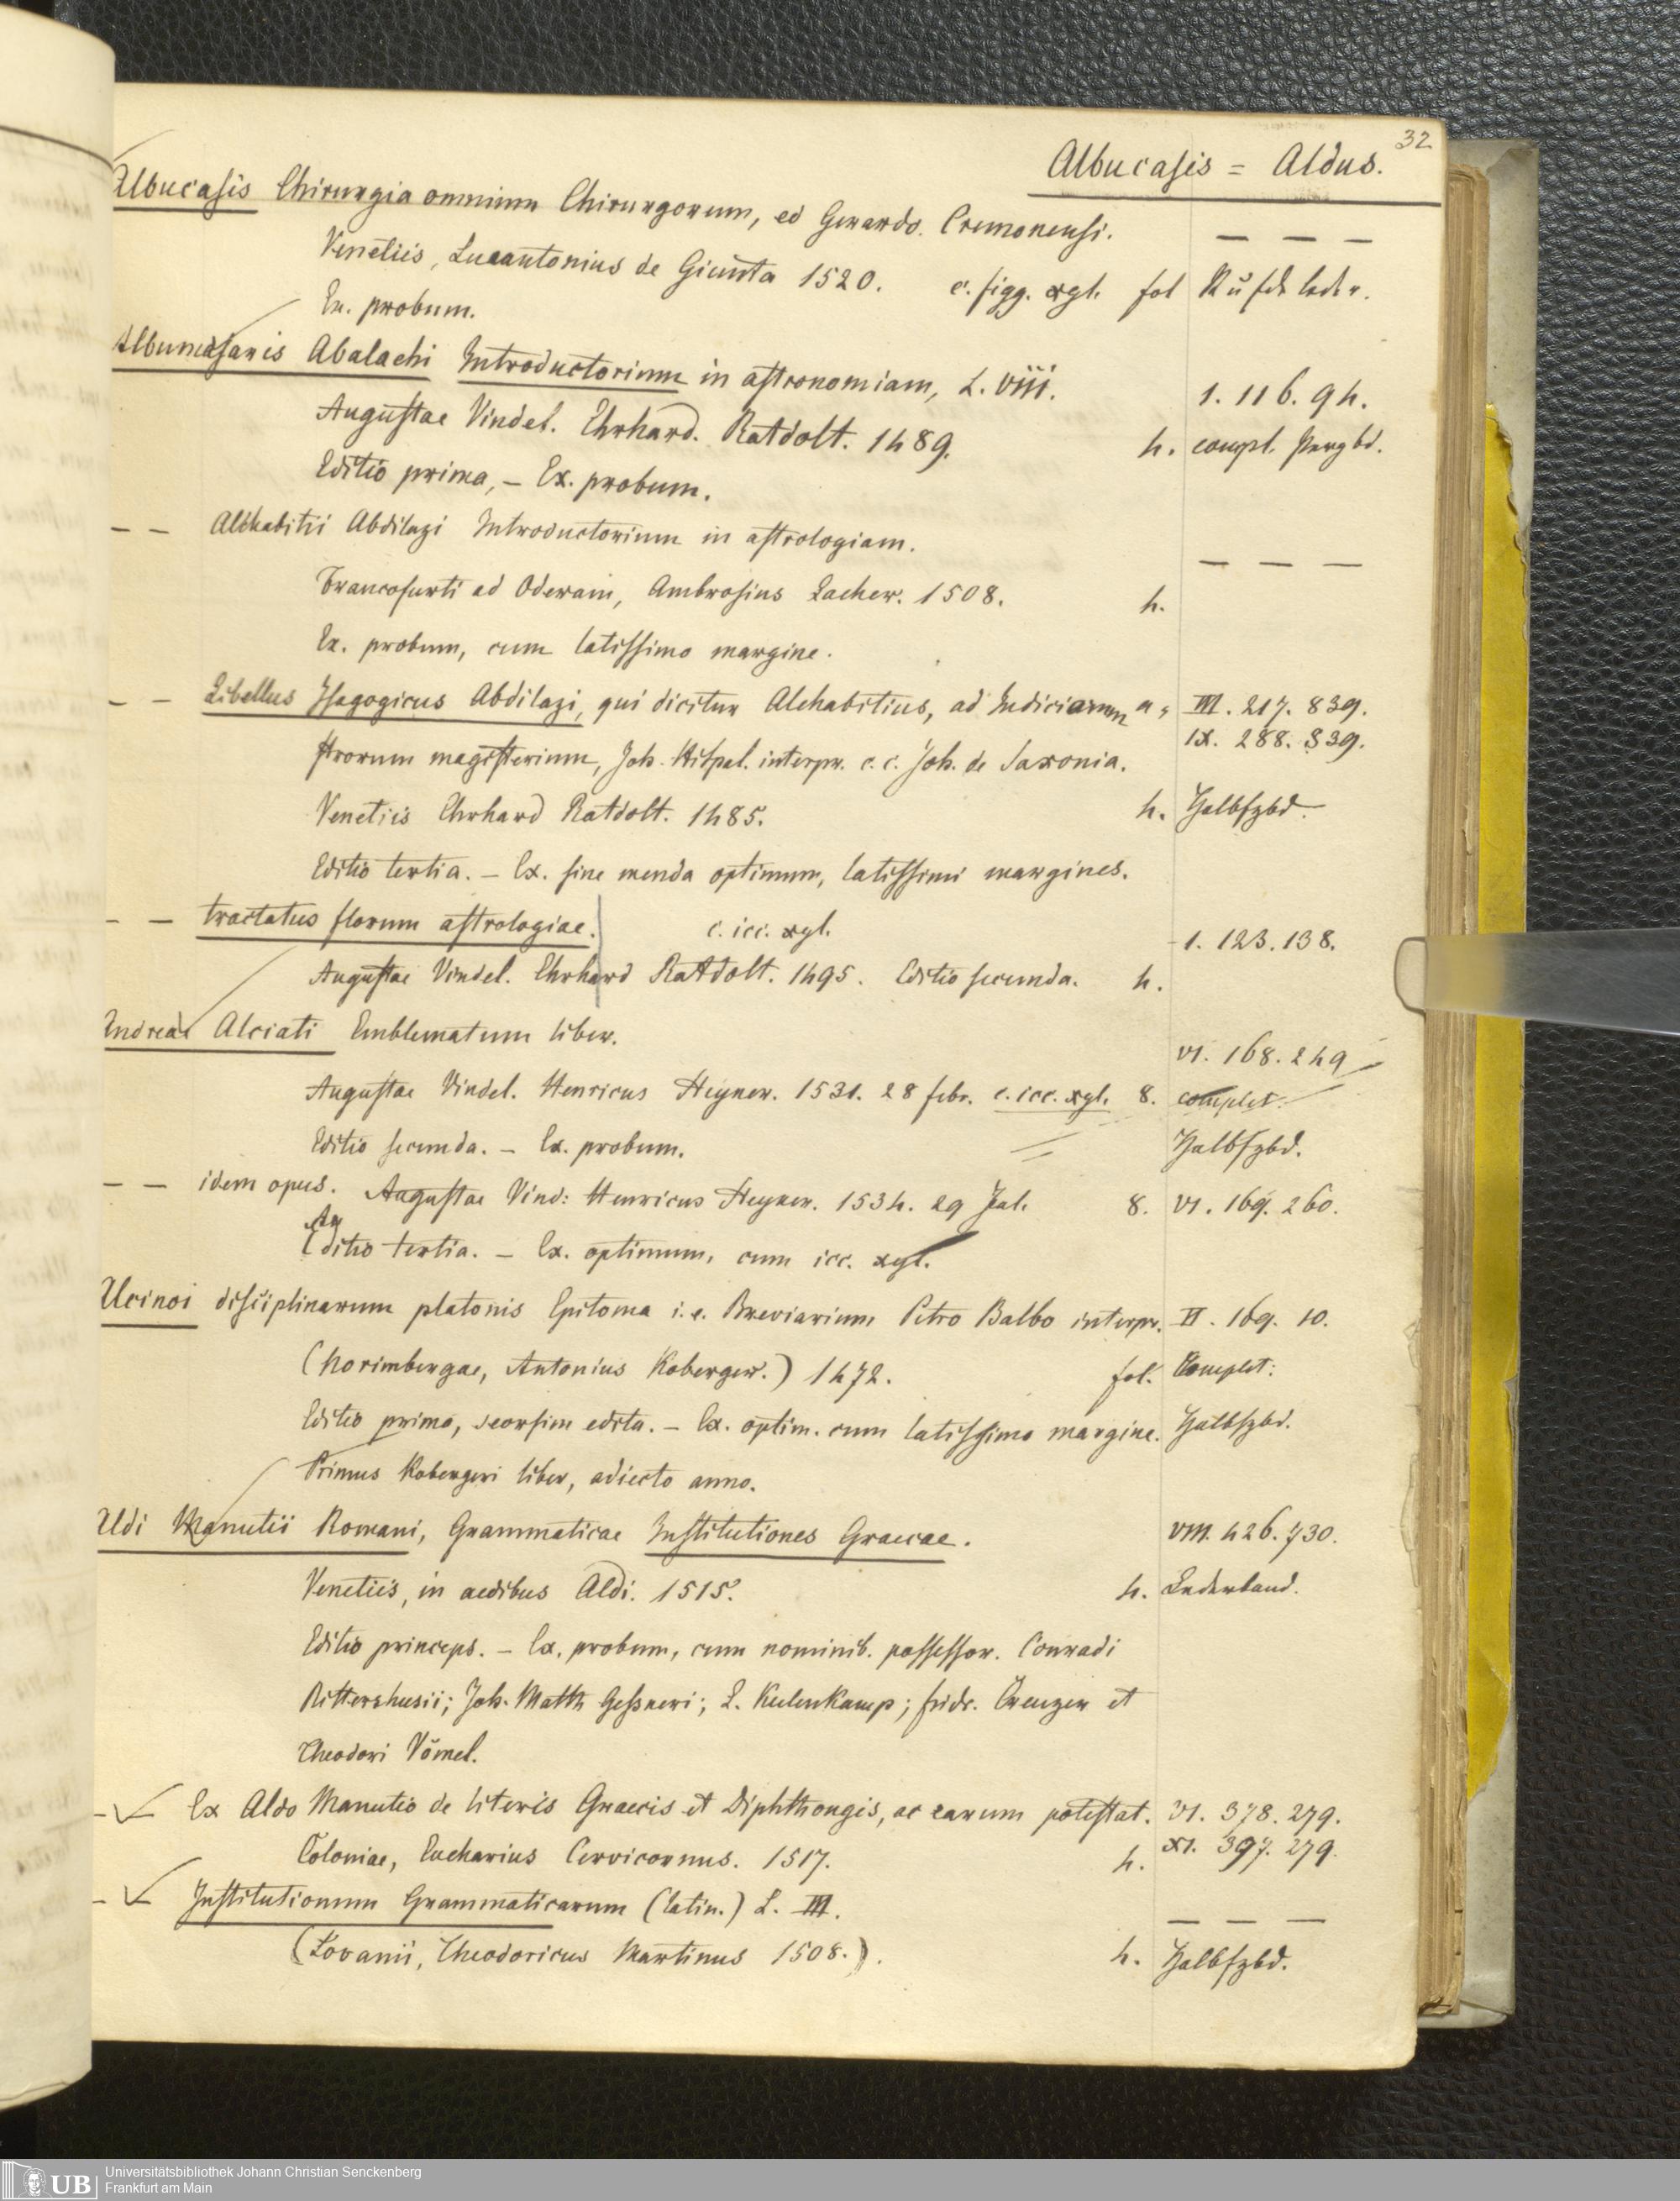 32
Albucasis = Aldus.
Albucasis Chirurgia omnium Chirurgorum, ed Gerardo. Cremonensi. — — —
Venetiis, Lucantonius de Giunta 1520. c. figg. xgl. fol
Ex. probum.
Albumasaris Abalachi Introductorium in astronomiam, L. VIII. 1. 116. 94.
Augustae Vindel. Ehrhard. Ratdolt. 1489. 4. compl. Pergbd.
Editio prima, – Ex. probum.
— — Alchabitii Abdilazi Introductorium in astrologiam. — — —
Francofurti ad Oderam, Ambrosius Lacher. 1508. 4.
Ex. probum, cum latissimo margine.
— — Libellus Isagogicus Abdilazi, qui dicitur Alchabitius, ad Iudiciorum a, III. 217. 839.
strorum magisterium, Joh. Hispal. interpr. c. c. Joh. de Saxonia. IX. 288. 839.
Venetiis Ehrhard Ratdolt. 1485. 4. Halbfzbd.
Editio tertia. – Ex. sine menda optimum, latissimi margines.
— — tractatus florum astrologiae. c. icc. xgl. 1. 123. 138.
Augustae Vindel. Ehrhard Ratdolt. 1495. Editio secunda. 4.
Andreae Alciati Emblematum liber. VI. 168. 249
Augustae Vindel. Henricus Steyner. 1531. 28 febr. c. icc. xgl. 8. complet.
Editio secunda. – Ex. probum. Halbfzbd.
— — idem opus. Augustae Vind: Henricus Steyner. 1534. 29 Jul. 8. VI. 169. 260.
Editio tertia. – Ex. optimum, cum icc. xgl.
Alcinoi disciplinarum platonis Epitoma i. e. Breviarium Petro Balbo interpr. II. 169. 10.
(Norimbergae, Antonius Koberger.) 1472. fol. Complet:
Editio prima, seorsim edita. – Ex. optim. cum latissimo margine. Halbfzbd.
Primus Kobergeri liber, adiecto anno.
Aldi Manutii Romani, Grammaticae Institutiones Graecae. VIII. 426. 730.
Venetiis, in aedibus Aldi. 1515. 4. Lederband.
Editio princeps. – Ex. probum, cum nominib. possessor. Conradi
Rittershusii; Joh. Matth Gessneri; L. Kulenkamp; fridr. Creuzer et
Theodori Vömel.
— Ex Aldo Manutio de literis Graecis et Diphthongis, ac earum potestat. VI. 378. 279.
Coloniae, Eucharius Cervicornus. 1517. 4. XI. 397. 279.
— Institutionum Grammaticarum (latin.) L. III. — — —
(Lovanii, Theodoricus Martinus 1508.). 4. Halbfzbd.
UB Universitätsbibliothek Johann Christian Senckenberg
Frankfurt am Main